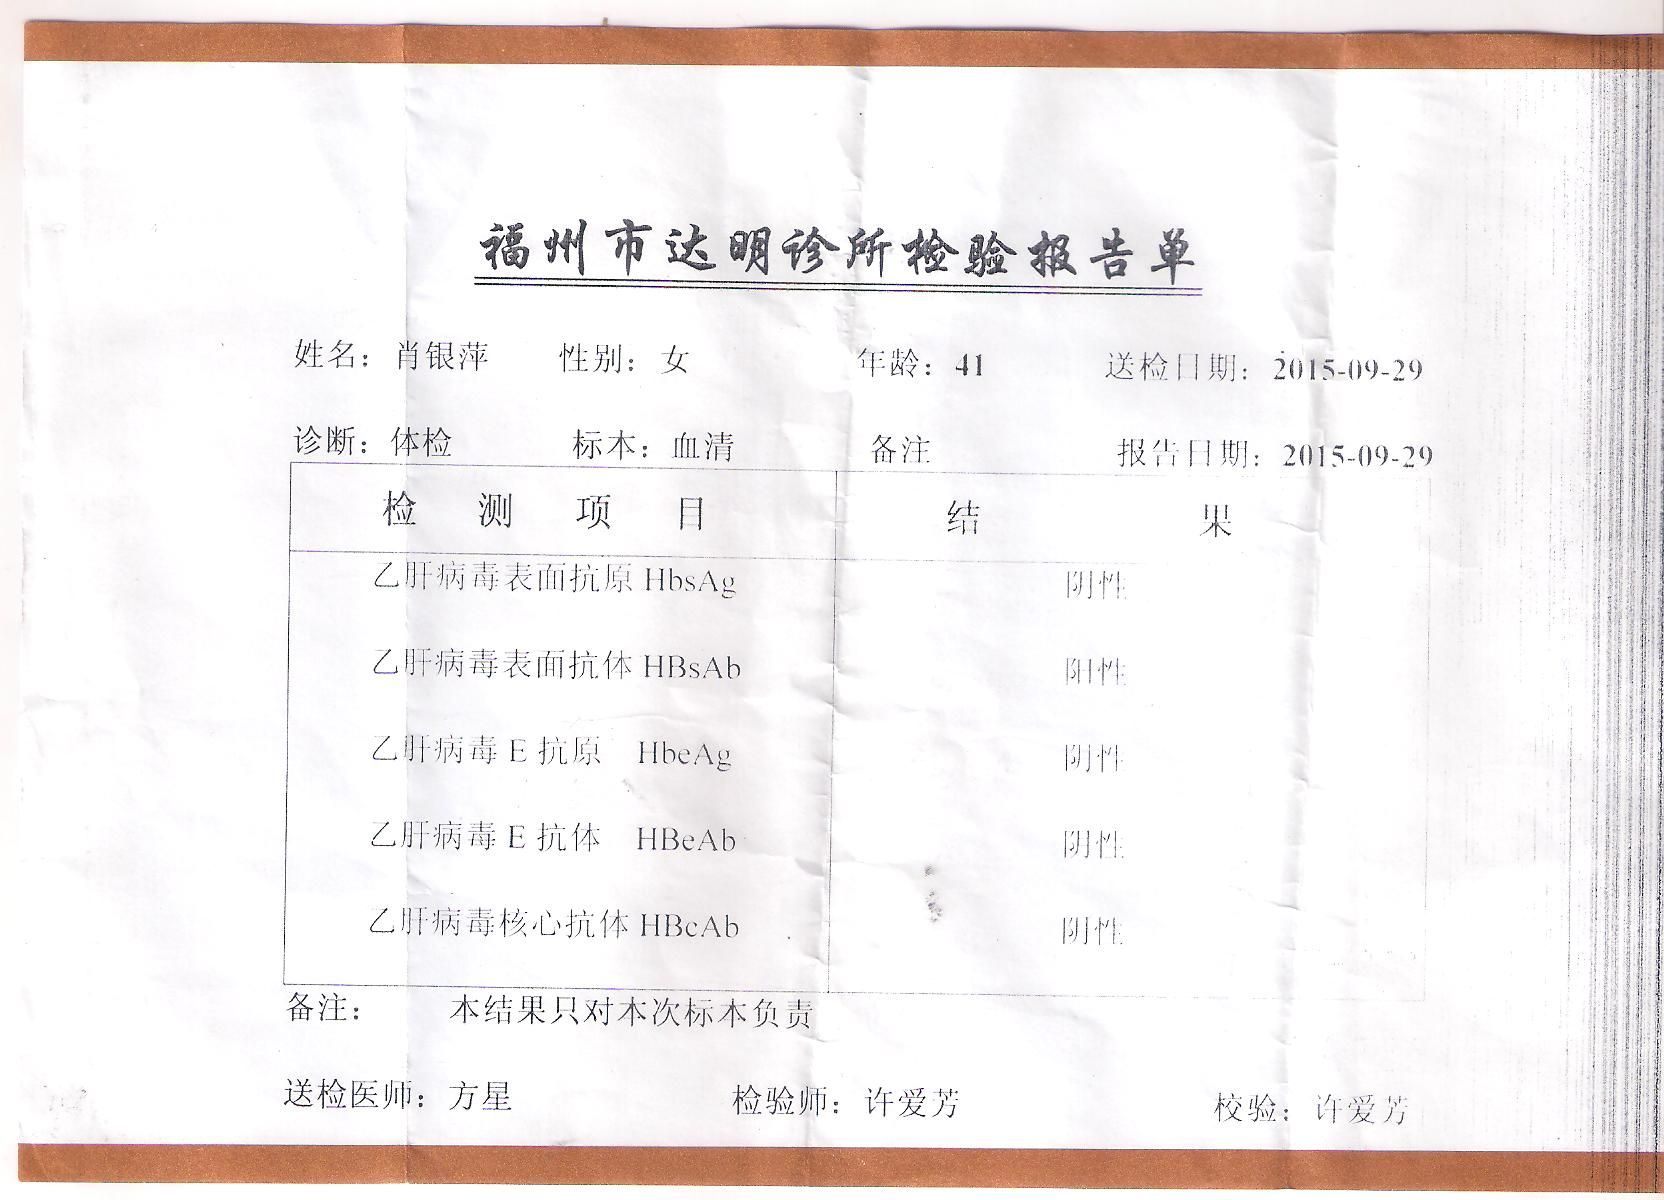 福州市达明诊所检验报告单
姓名：肖银萍 性别：女 年龄：41 送检日期：2015-09-29
诊断：体检 标本：血清 备注 报告日期：2015-09-29
检测项目 结果
乙肝病毒表面抗原 HbsAg 阴性
乙肝病毒表面抗体 HBsAb 阳性
乙肝病毒 E 抗原 HbeAg 阴性
乙肝病毒 E 抗体 HBeAb 阴性
乙肝病毒核心抗体 HBcAb 阴性
备注： 本结果只对本次标本负责
送检医师：方星 检验师：许爱芳 校验：许爱芳